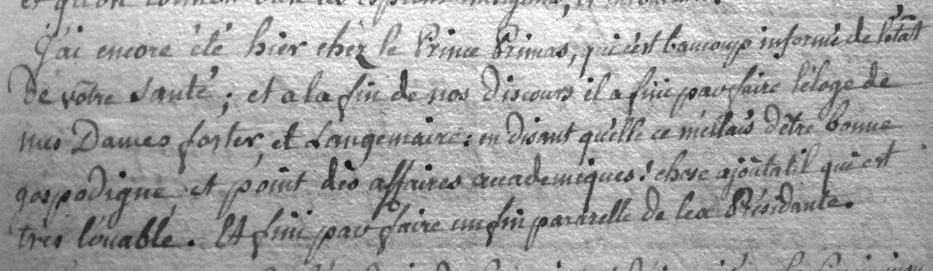 et qu'on
J'ai encore été hier chez le Prince Primas, qui s'est baucoup informé de l'état
De vôtre santé; et a la fin de nos discours il a fini par faire l'éloge de
mes Dames forster, et Langemaire: en disant qu'elle ce mellais d'être bonne
gospodigne et point des affaires accademiques: chose ajoutatil qui est
tres louable. Et fini par faire un fin pararelle de lex Présidante.